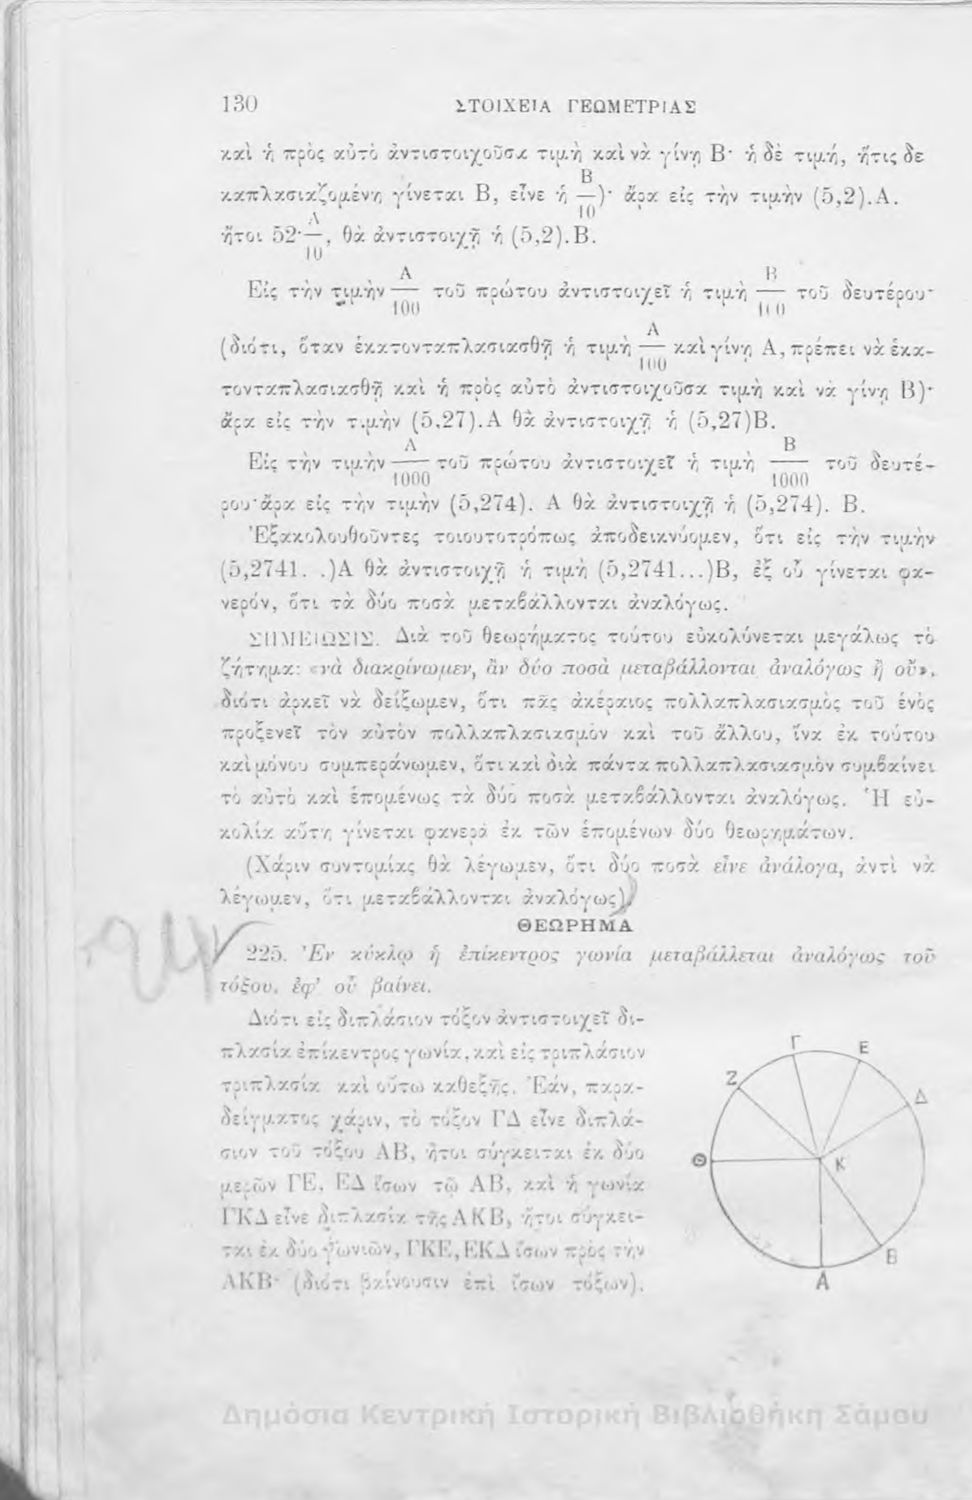 130 ΣΤΟΙΧΕΙΑ ΓΕΩΜΕΤΡΙΑΣ
καὶ ἡ πρὸς αὐτὸ ἀντιστοιχοῦσα τιμὴ καὶ νὰ γίνῃ Β· ἡ δὲ τιμή, ἥτις δε
καπλασιαζομένη γίνεται Β, εἶνε ἡ Β/10)· ἄρα εἰς τὴν τιμὴν (5,2).Α.
ἤτοι 52·Α/10, θὰ ἀντιστοιχῇ ἡ (5,2).Β.
Εἰς τὴν τιμὴν Α/100 τοῦ πρώτου ἀντιστοιχεῖ ἡ τιμὴ Β/100 τοῦ δευτέρου·
(διότι, ὅταν ἑκατονταπλασιασθῇ ἡ τιμὴ Α/100 καὶ γίνῃ Α, πρέπει νὰ ἑκα-
τονταπλασιασθῇ καὶ ἡ πρὸς αὐτὸ ἀντιστοιχοῦσα τιμὴ καὶ νὰ γίνῃ Β)·
ἄρα εἰς τὴν τιμὴν (5,27).Α θὰ ἀντιστοιχῇ ἡ (5,27)Β.
Εἰς τὴν τιμὴν Α/1000 τοῦ πρώτου ἀντιστοιχεῖ ἡ τιμὴ Β/1000 τοῦ δευτέ-
ρου· ἄρα εἰς τὴν τιμὴν (5,274). Α θὰ ἀντιστοιχῇ ἡ (5,274). Β.
Ἐξακολουθοῦντες τοιουτοτρόπως ἀποδεικνύομεν, ὅτι εἰς τὴν τιμὴν
(5,2741. .)Α θὰ ἀντιστοιχῇ ἡ τιμὴ (5,2741...)Β, ἐξ οὗ γίνεται φα-
νερόν, ὅτι τὰ δύο ποσὰ μεταβάλλονται ἀναλόγως.
ΣΗΜΕΙΩΣΙΣ. Διὰ τοῦ θεωρήματος τούτου εὐκολύνεται μεγάλως τὸ
ζήτημα: «νὰ διακρίνωμεν, ἂν δύο ποσὰ μεταβάλλονται ἀναλόγως ἢ οὔ»,
διότι ἀρκεῖ νὰ δείξωμεν, ὅτι πᾶς ἀκέραιος πολλαπλασιασμὸς τοῦ ἑνὸς
προξενεῖ τὸν αὐτὸν πολλαπλασιασμὸν καὶ τοῦ ἄλλου, ἵνα ἐκ τούτου
καὶ μόνου συμπεράνωμεν, ὅτι καὶ διὰ πάντα πολλαπλασιασμὸν συμβαίνει
τὸ αὐτὸ καὶ ἑπομένως τὰ δύο ποσὰ μεταβάλλονται ἀναλόγως. Ἡ εὐ-
κολία αὕτη γίνεται φανερὰ ἐκ τῶν ἑπομένων δύο θεωρημάτων.
(Χάριν συντομίας θὰ λέγωμεν, ὅτι δύο ποσὰ εἶνε ἀνάλογα, ἀντὶ νὰ
λέγωμεν, ὅτι μεταβάλλονται ἀναλόγως).
ΘΕΩΡΗΜΑ
225. Ἐν κύκλῳ ἡ ἐπίκεντρος γωνία μεταβάλλεται ἀναλόγως τοῦ
τόξου, ἐφ' οὗ βαίνει.
Διότι εἰς διπλάσιον τόξον ἀντιστοιχεῖ δι-
πλασία ἐπίκεντρος γωνία, καὶ εἰς τριπλάσιον
τριπλασία καὶ οὕτω καθεξῆς. Ἐάν, παρα-
δείγματος χάριν, τὸ τόξον ΓΔ εἶνε διπλά-
σιον τοῦ τόξου ΑΒ, ἤτοι σύγκειται ἐκ δύο
μερῶν ΓΕ, ΕΔ ἴσων τῷ ΑΒ, καὶ ἡ γωνία
ΓΚΔ εἶνε διπλασία τῆς ΑΚΒ, ἤτοι σύγκει-
ται ἐκ δύο γωνιῶν, ΓΚΕ, ΕΚΔ ἴσων πρὸς τὴν
ΑΚΒ· (διότι βαίνουσιν ἐπὶ ἴσων τόξων).
Γ Ε
Ζ Δ
Θ Κ
Β
Α
Δημόσια Κεντρική Ιστορική Βιβλιοθήκη Σάμου